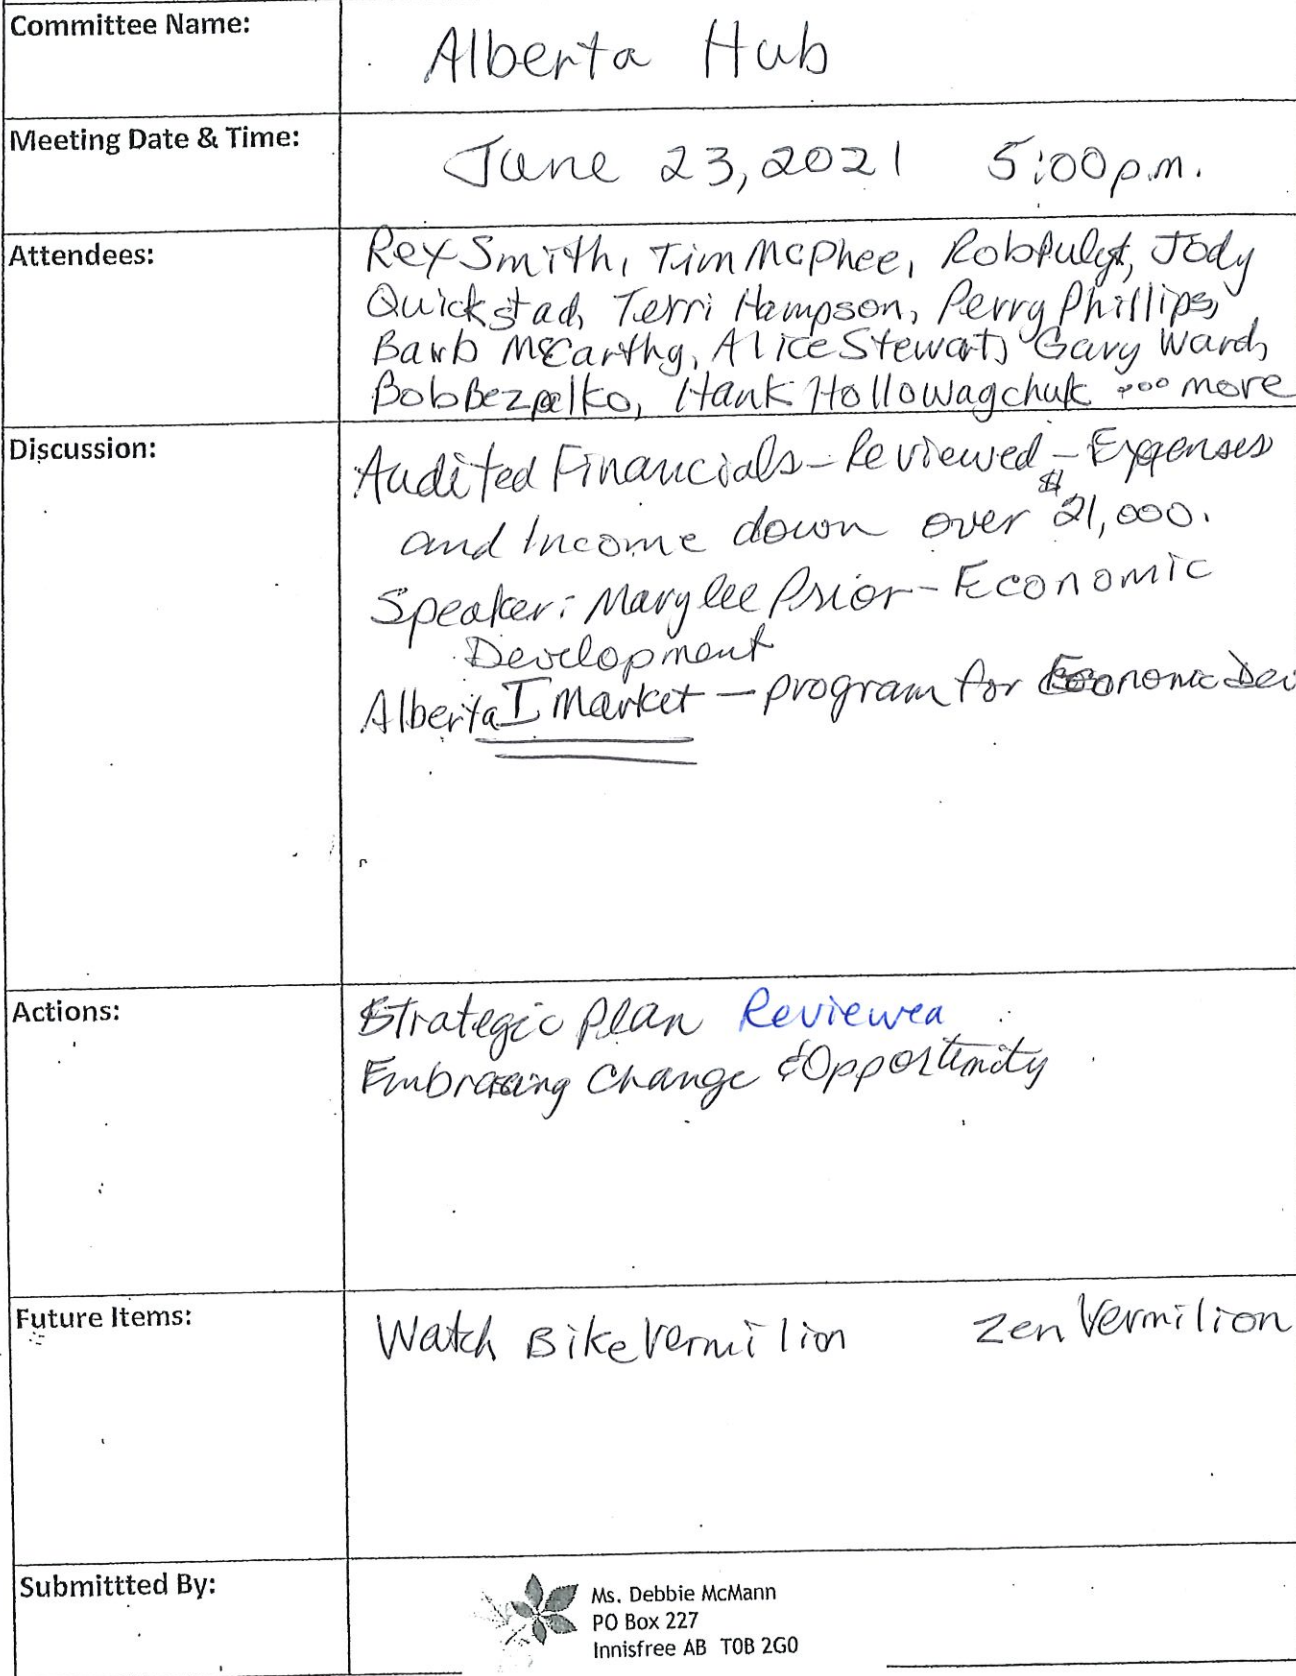 Committee Name:
Alberta Hub
Meeting Date & Time:
June 23, 2021 5:00 p.m.
Attendees:
Rex Smith, Tim McPhee, Rob Pulyt, Jody
Quickstad, Terri Hampson, Perry Phillips,
Barb McCarthy, Alice Stewart, Gary Ward,
Bob Bezpalko, Hank Hollowaychuk ... more
Discussion:
Audited Financials - Reviewed - Expenses
and Income down over $21,000.
Speaker: Marylee Prior - Economic
Development
Alberta I Market - program for Economic Dev
Actions:
Strategic Plan Reviewed
Embracing Change & Opportunity
Future Items:
Watch Bike Vermilion Zen Vermilion
Submittted By:
Ms. Debbie McMann
PO Box 227
Innisfree AB T0B 2G0